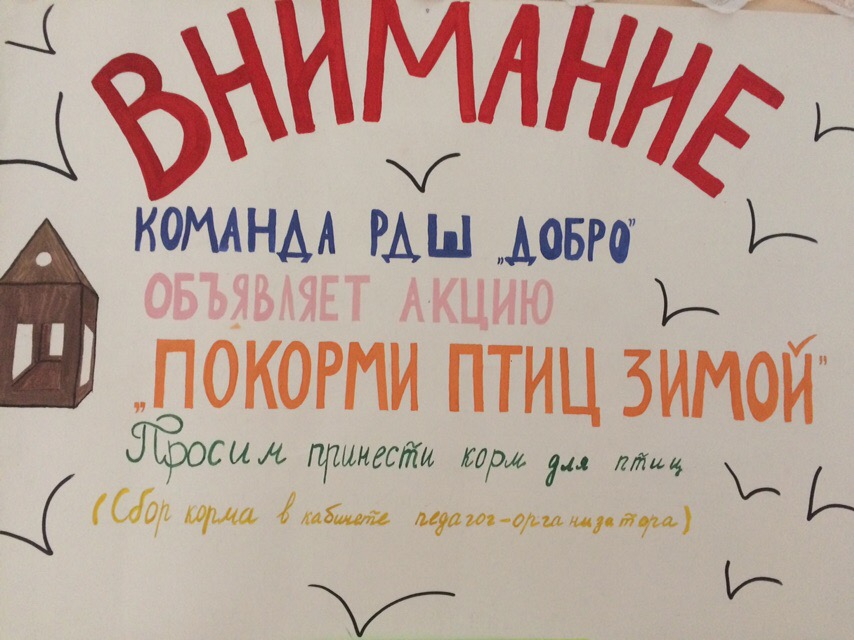 ВНИМАНИЕ
КОМАНДА РДШ „ДОБРО"
ОБЪЯВЛЯЕТ АКЦИЮ
„ПОКОРМИ ПТИЦ ЗИМОЙ"
Просим принести корм для птиц
(Сбор корма в кабинете педагог-организатора)